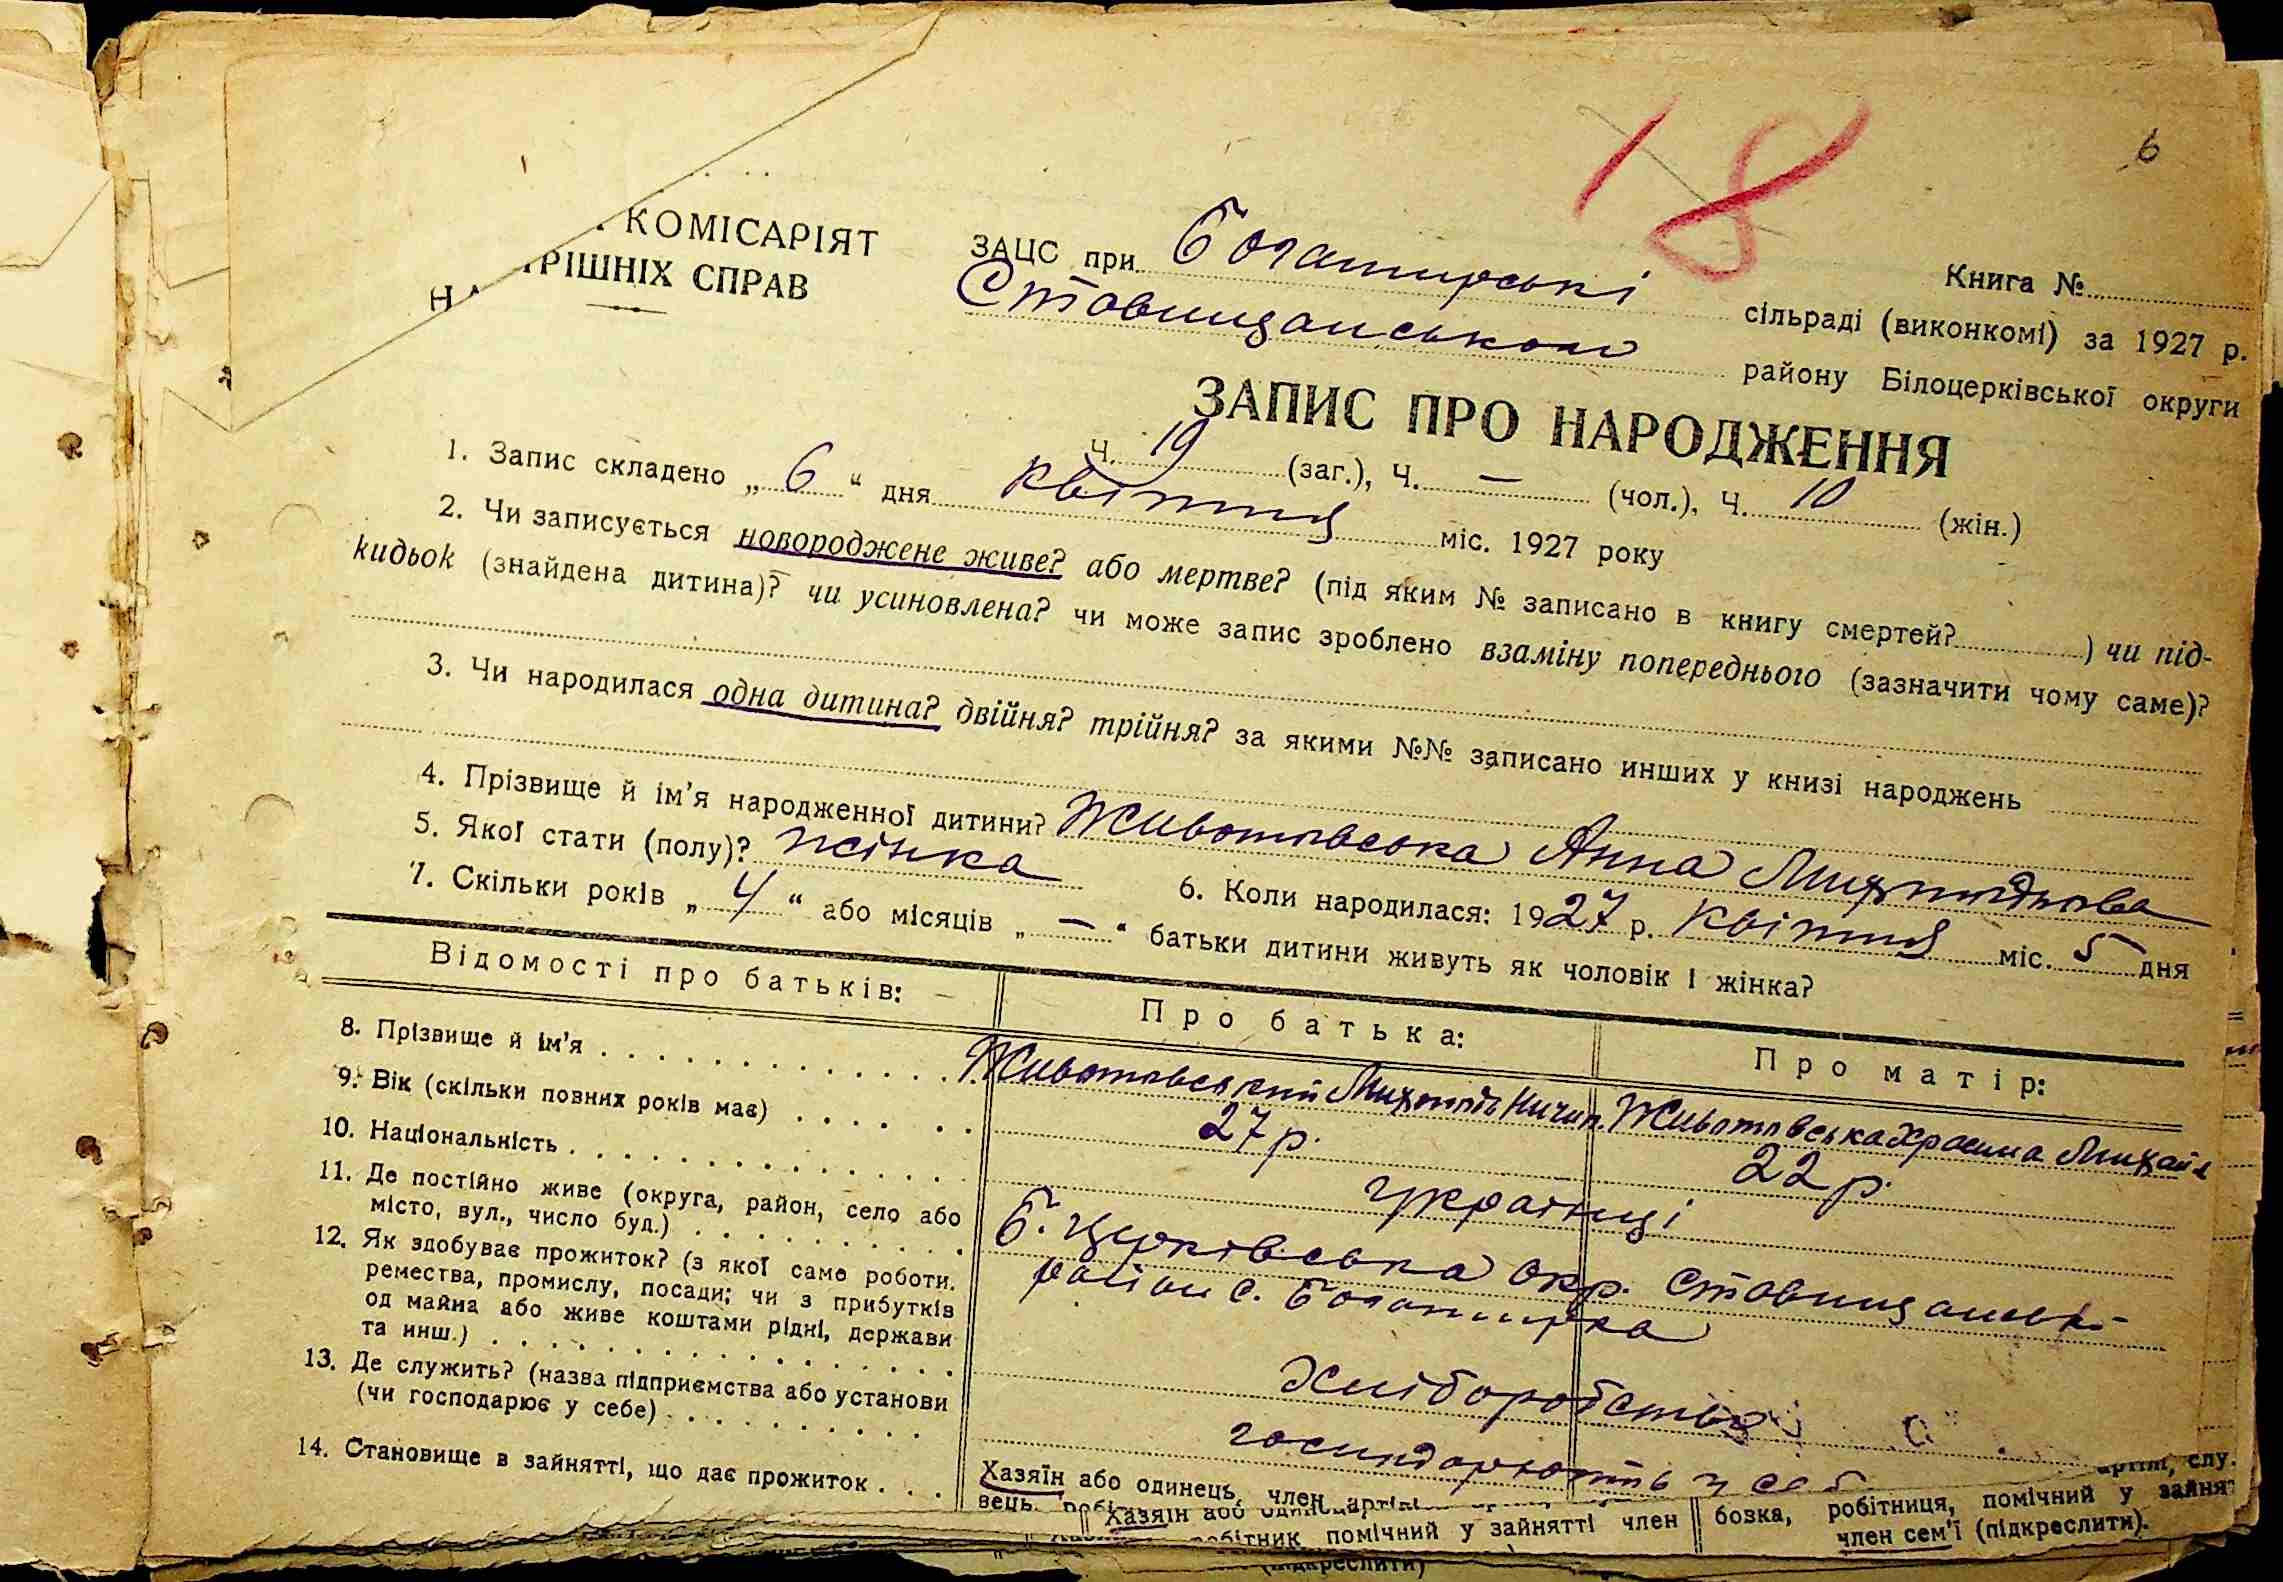 18
6
КОМІСАРІЯТ
РІШНІХ СПРАВ
ЗАЦС при Богатирські
Книга №
сільраді (виконкомі) за 1927 р.
Ставищанськом
району Білоцерківської округи
ЗАПИС ПРО НАРОДЖЕННЯ
Ч. 19 (заг.), Ч. — (чол.), Ч. 10 (жін.)
1. Запис складено „ 6 “ дня квітня міс. 1927 року
2. Чи записується новороджене живе? або мертве? (під яким № записано в книгу смертей? ) чи під-
кидьок (знайдена дитина)? чи усиновлена? чи може запис зроблено взаміну попереднього (зазначити чому саме)?
3. Чи народилася одна дитина? двійня? трійня? за якими №№ записано инших у книзі народжень
4. Прізвище й ім’я народженної дитини? Животовська Анна
5. Якої стати (полу)? жінка 6. Коли народилася: 1927 р. квітня міс. 5 дня
7. Скільки років „ 4 “ або місяців „ — “ батьки дитини живуть як чоловік і жінка?
Відомості про батьків:
Про батька:
Про матір:
8. Прізвище й ім’я
Животовський
Животовська Михайл
9. Вік (скільки повних років має)
27 р.
22 р.
10. Національність
українці
11. Де постійно живе (округа, район, село або
місто, вул., число буд.)
Б. Церківська окр. Ставищанськ.
район с. Богатирка
12. Як здобуває прожиток? (з якої саме роботи.
ремества, промислу, посади; чи з прибутків
од майна або живе коштами рідні, держави
та инш.)
Хліборобство
13. Де служить? (назва підприємства або установи
(чи господарює у себе)
господарюють у себ
14. Становище в зайнятті, що дає прожиток
Хазяїн або одинець, член артілі
артілі, слу.
вець,
Хазяїн або одинець,
бовка, робітниця, помічний у зайня
робітник помічний у зайнятті член
член сем’ї (підкреслити).
(підкреслити)